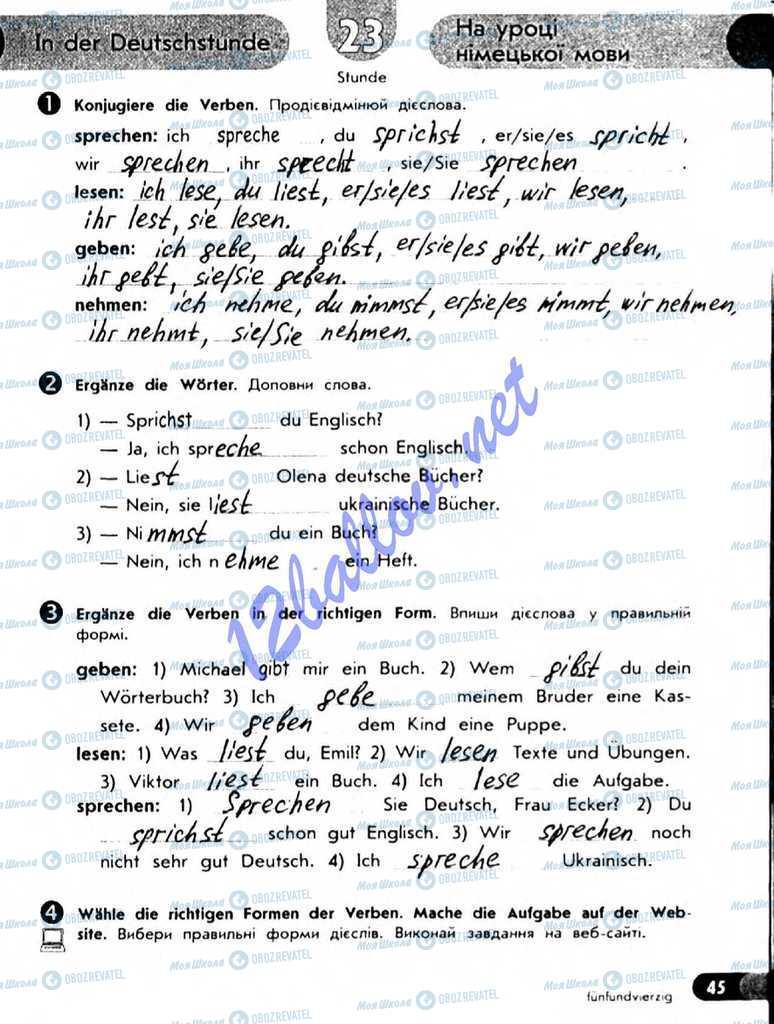 In der Deutschstunde
23
Stunde
На уроці
німецької мови
1 Konjugiere die Verben. Продієвідмінюй дієслова.
sprechen: ich spreche , du sprichst , er/sie/es spricht ,
wir sprechen , ihr sprecht , sie/Sie sprechen .
lesen: ich lese, du liest, er/sie/es liest, wir lesen,
ihr lest, sie lesen.
geben: ich gebe, du gibst, er/sie/es gibt, wir geben,
ihr gebt, sie/Sie geben.
nehmen: ich nehme, du nimmst, er/sie/es nimmt, wir nehmen,
ihr nehmt, sie/Sie nehmen.
2 Ergänze die Wörter. Доповни слова.
1) — Sprichst du Englisch?
— Ja, ich spreche schon Englisch.
2) — Liest Olena deutsche Bücher?
— Nein, sie liest ukrainische Bücher.
3) — Nimmst du ein Buch?
— Nein, ich nehme ein Heft.
3 Ergänze die Verben in der richtigen Form. Впиши дієслова у правильній
формі.
geben: 1) Michael gibt mir ein Buch. 2) Wem gibst du dein
Wörterbuch? 3) Ich gebe meinem Bruder eine Kas-
sete. 4) Wir geben dem Kind eine Puppe.
lesen: 1) Was liest du, Emil? 2) Wir lesen Texte und Übungen.
3) Viktor liest ein Buch. 4) Ich lese die Aufgabe.
sprechen: 1) Sprechen Sie Deutsch, Frau Ecker? 2) Du
sprichst schon gut Englisch. 3) Wir sprechen noch
nicht sehr gut Deutsch. 4) Ich spreche Ukrainisch.
4 Wähle die richtigen Formen der Verben. Mache die Aufgabe auf der Web-
site. Вибери правильні форми дієслів. Виконай завдання на веб-сайті.
fünfundvierzig
45
12ballov.net
Моя Школа OBOZREVATEL